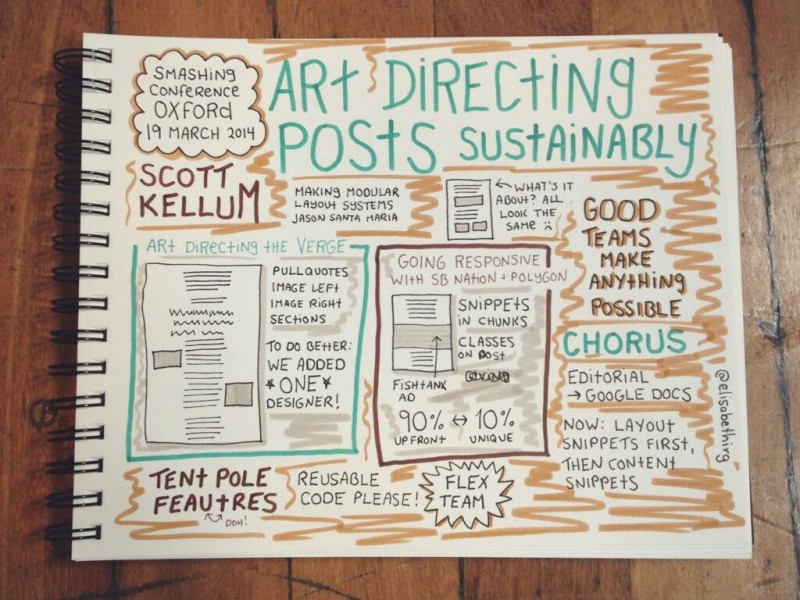 SMASHING
CONFERENCE
OXFORD
19 MARCH 2014
ART DIRECTING
POSTS SUSTAINABLY
SCOTT
KELLUM
MAKING MODULAR
LAYOUT SYSTEMS
JASON SANTA MARIA
WHAT'S IT
ABOUT? ALL
LOOK THE
SAME :(
GOOD
TEAMS
MAKE
ANYTHING
POSSIBLE
ART DIRECTING THE VERGE
PULLQUOTES
IMAGE LEFT
IMAGE RIGHT
SECTIONS
TO DO BETTER:
WE ADDED
*ONE*
DESIGNER!
GOING RESPONSIVE
WITH SB NATION + POLYGON
SNIPPETS
IN CHUNKS
CLASSES
ON POST
FISHTANK
AD
90% ↔ 10%
UPFRONT UNIQUE
CHORUS
EDITORIAL
→ GOOGLE DOCS
NOW: LAYOUT
SNIPPETS FIRST,
THEN CONTENT
SNIPPETS
@elisabethirg
TENT POLE
FEAUTRES
DOH!
REUSABLE
CODE PLEASE!
FLEX
TEAM